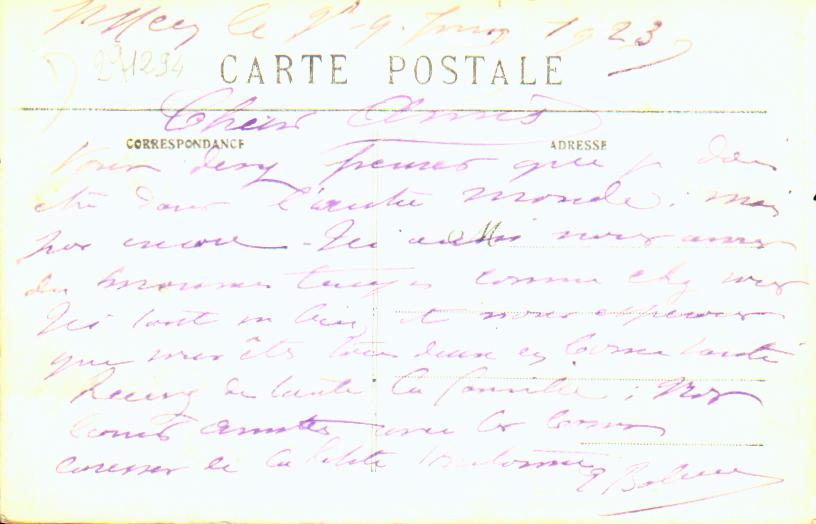 le 9 Juin 1923
291294
CARTE POSTALE
Chers Amis
CORRESPONDANCE ADRESSE
Vous devez penser que je dois
être dans l'autre monde; mais
pas encore - Ici aussi nous avons
du mauvais temps comme chez vous
Ici tout va bien, et nous espérons
que vous êtes tous deux en bonne santé
Recevez de toute la famille; nos
bonnes amitiés avec les bonnes
caresses de la petite